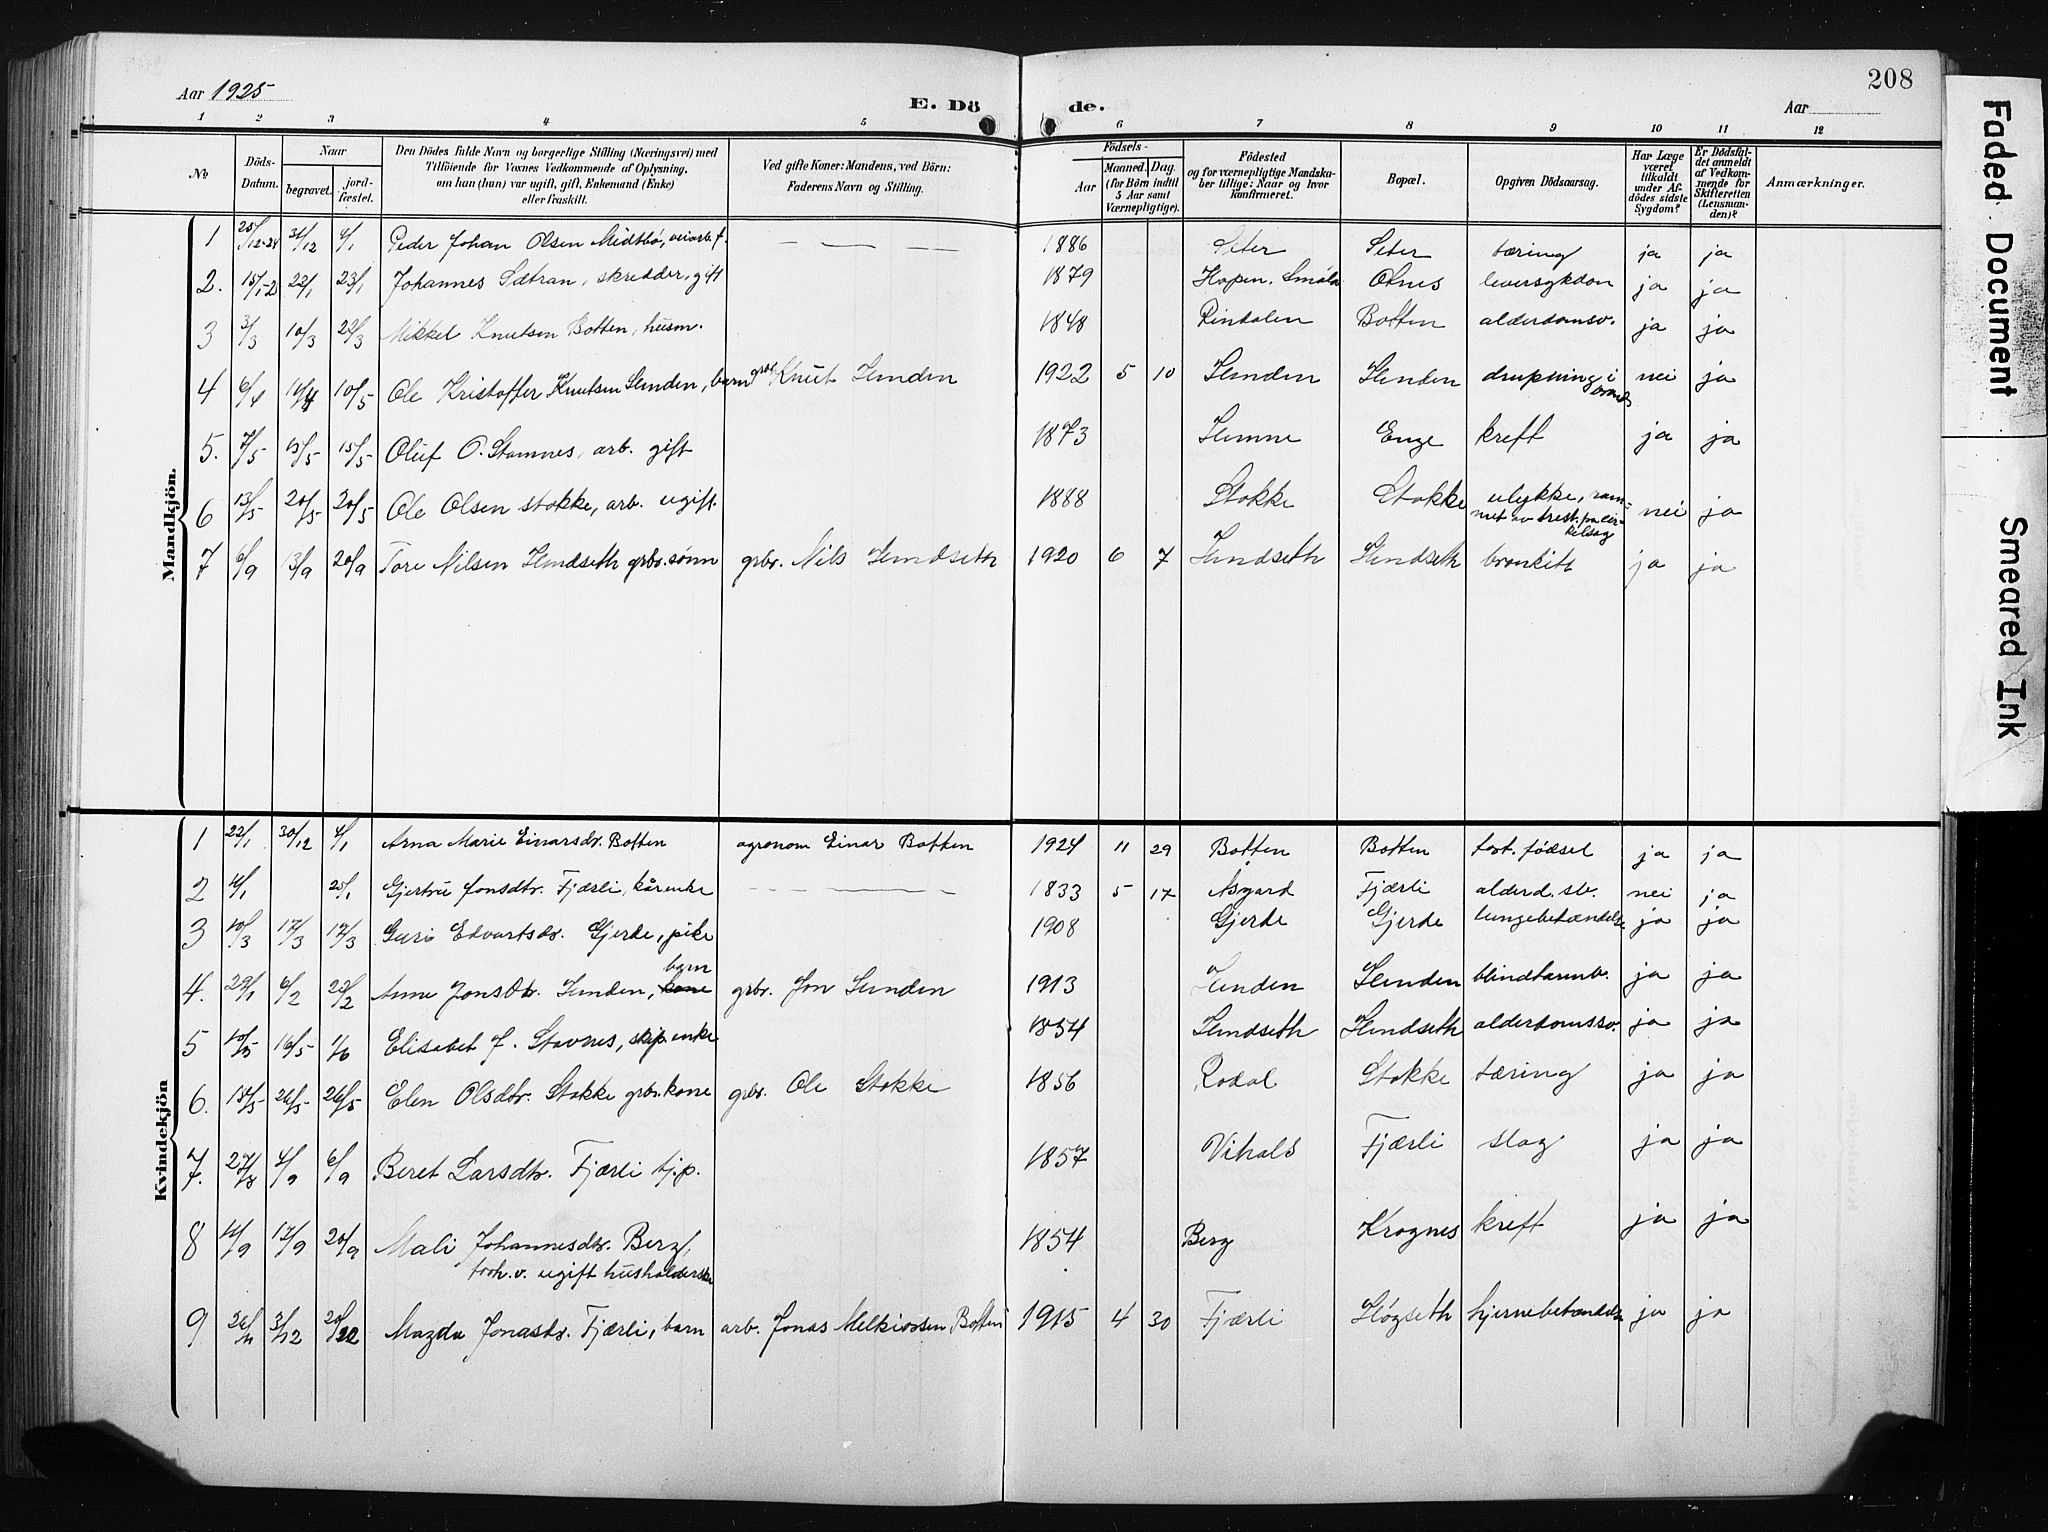 208
Aar 1925
E. Dö de.
Aar
1 2 3 4 5 6 7 8 9 10 11 12
No
Döds-Datum.
Naar
begravet.
jord-fæstet.
Den Dödes fulde Navn og borgerlige Stilling (Næringsvei) med
Tilföiende for Voxnes Vedkommende af Oplysning,
om han (hun) var ugift, gift, Enkemand (Enke)
eller fraskilt.
Ved gifte Koner: Mandens, ved Börn:
Faderens Navn og Stilling.
Födsels-
Aar
Maaned. Dag.
(for Börn indtil
5 Aar samt
Værnepligtige).
Födested
og for værnepligtige Mandska-
ber tillige: Naar og hvor
konfirmeret.
Bopæl.
Opgiven Dödsaarsag.
Har Læge
været
tilkaldt
under Af-
dödes sidste
Sygdom?
Er Dödsfal-
det anmeldt
af Vedkom-
mende for
Skifteretten
(Lensman-
den)?
Anmærkninger.
Mandkjön.
1 25/12-24 31/12 4/1 Peder Johan Olsen Midtbö, veiarb. f. — — — 1886 Seter Seter tæring ja ja
2. 15/1-2 22/1 23/1 Johannes Sætran, skredder, gift 1879 Hopen, Smöla Otnes leversykdom ja ja
3 3/3 10/3 22/3 Mikkel Knutsen Botten, husm. 1848 Rindalen Botten alderdomsv. ja ja
4 6/4 14/4 10/5 Ole Kristoffer Knutsen Henden, barn grbr. Knut Henden 1922 5 10 Henden Henden drukning i brønd nei ja
5. 7/5 13/5 15/5 Oluf O. Stamnes, arb. gift 1873 Hemne Enge kreft ja ja
6 13/5 20/5 20/5 Ole Olsen Stokke, arb. ugift. 1888 Stokke Stokke ulykke, ram-
met av trest. på cir-
kelsag nei ja
7 6/9 13/9 20/9 Tore Nilsen Hendseth grbr. sønn grbr. Nils Hendseth 1920 6 7 Hendseth Hendseth bronkitt ja ja
Kvindekjön
1 22/1 30/12 4/1 Arna Marie Einarsdr. Botten agronom Einar Botten 1924 11 29 Botten Botten fort. fødsel ja ja
2 4/1 25/1 Gjertru Jonsdtr. Fjærli, kårenke — — — 1833 5 17 Åsgard Fjærli alderd. sv. nei ja
3 10/3 17/3 17/3 Guri Edvartsdr. Gjerde, pike 1908 Gjerde Gjerde lungebetændelse ja ja
barn
4. 29/1 6/2 22/2 Anne Jonsdtr. Henden, kone grbr. Jon Henden 1913 Henden Henden blindtarmb. ja ja
5 10/5 16/5 1/6 Elisabet J. Stavnes, skip. enke 1854 Hendseth Hendseth alderdomssv. ja ja
6. 15/5 26/5 26/5 Elen Olsdtr. Stokke grbr. kone grbr. Ole Stokke 1856 Rodal Stokke tæring ja ja
7. 27/8 4/9 6/9 Beret Larsdtr. Fjærli tj.p. 1857 Vihals Fjærli slag ja ja
8 11/9 17/9 20/9 Mali Johannesdtr. Berg,
forh.v. ugift husholderske 1854 Berg Krognes kreft ja ja
9 26/11 3/12 20/12 Magda Jonasdr. Fjærli, barn arb. Jonas Melkiorsen Botten 1915 4 30 Fjærli Høgseth hjernebetændelse ja ja
Faded Document
Smeared Ink